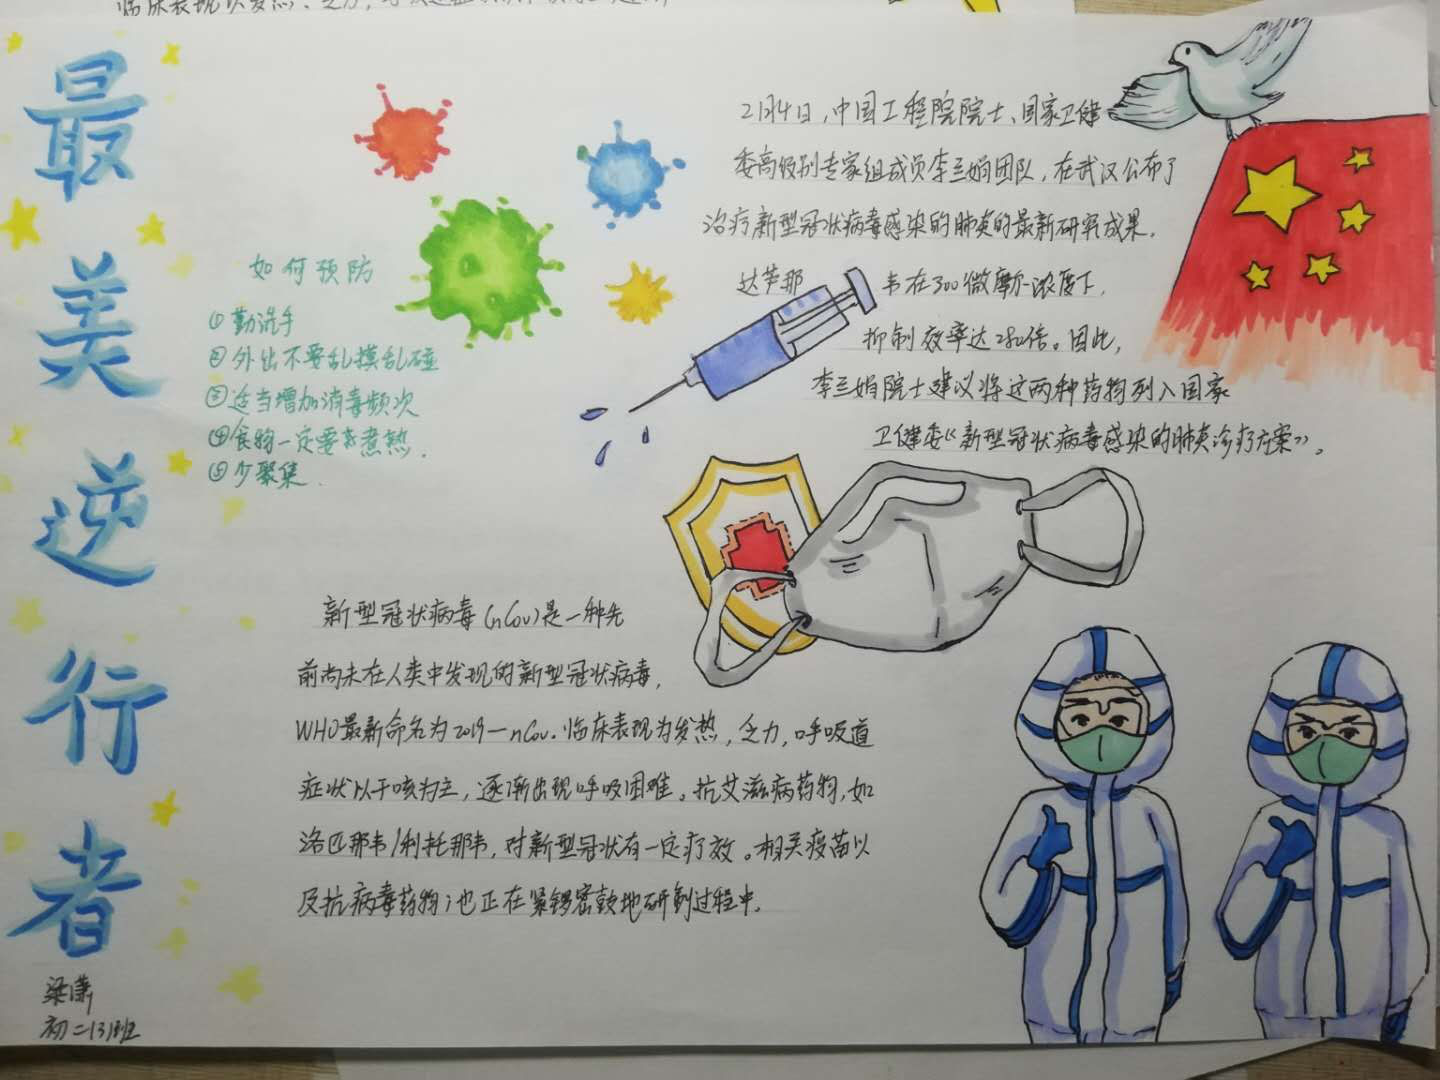 最美逆行者
梁潇
初二(3)班
如何预防
①勤洗手
②外出不要乱摸乱碰
③适当增加消毒频次
④食物一定要煮熟.
⑤少聚集.
2月4日,中国工程院院士、国家卫健
委高级别专家组成员李兰娟团队,在武汉公布了
治疗新型冠状病毒感染的肺炎的最新研究成果.
达芦那韦在300微摩尔浓度下,
抑制效率达280倍。因此,
李兰娟院士建议将这两种药物列入国家
卫健委《新型冠状病毒感染的肺炎诊疗方案》。
新型冠状病毒(nCov)是一种先
前尚未在人类中发现的新型冠状病毒,
WHO最新命名为2019—nCov.临床表现为发热,乏力,呼吸道
症状以干咳为主,逐渐出现呼吸困难。抗艾滋病药物,如
洛匹那韦/利托那韦,对新型冠状有一定疗效。相关疫苗以
及抗病毒药物,也正在紧锣密鼓地研制过程中.